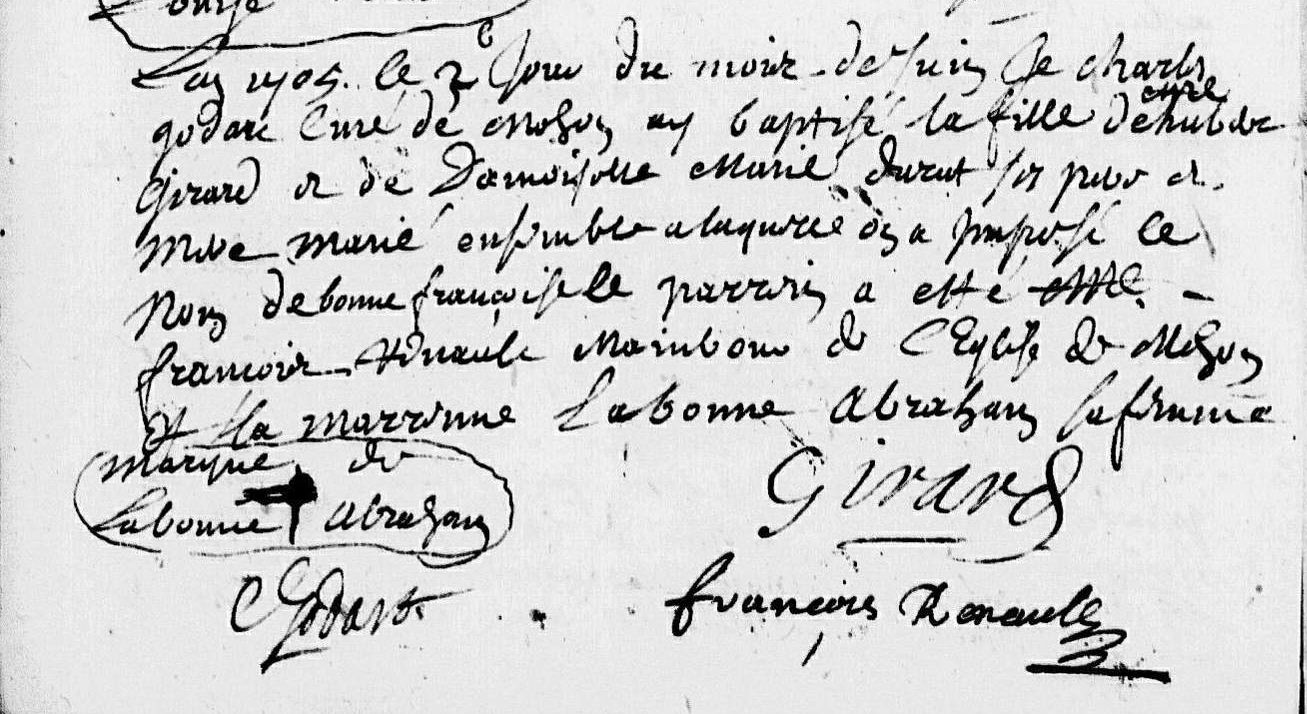 Lan 1705. le 2 Jour du mois de Juin Je charles
godart Curé de Mohon ay baptisé la fille de hubert
Girard et de Damoiselle Marie durut ses pere et
Mere marié ensemble a laquelle on a Imposé le
Nom de bonne françoise le parrein a esté
francois Renault Mambour de l'Eglise de Mohon
et la marrinne Labonne Abraham sa femme
marque de
Labonne Abraham
Girard
CGodart
francois Renault